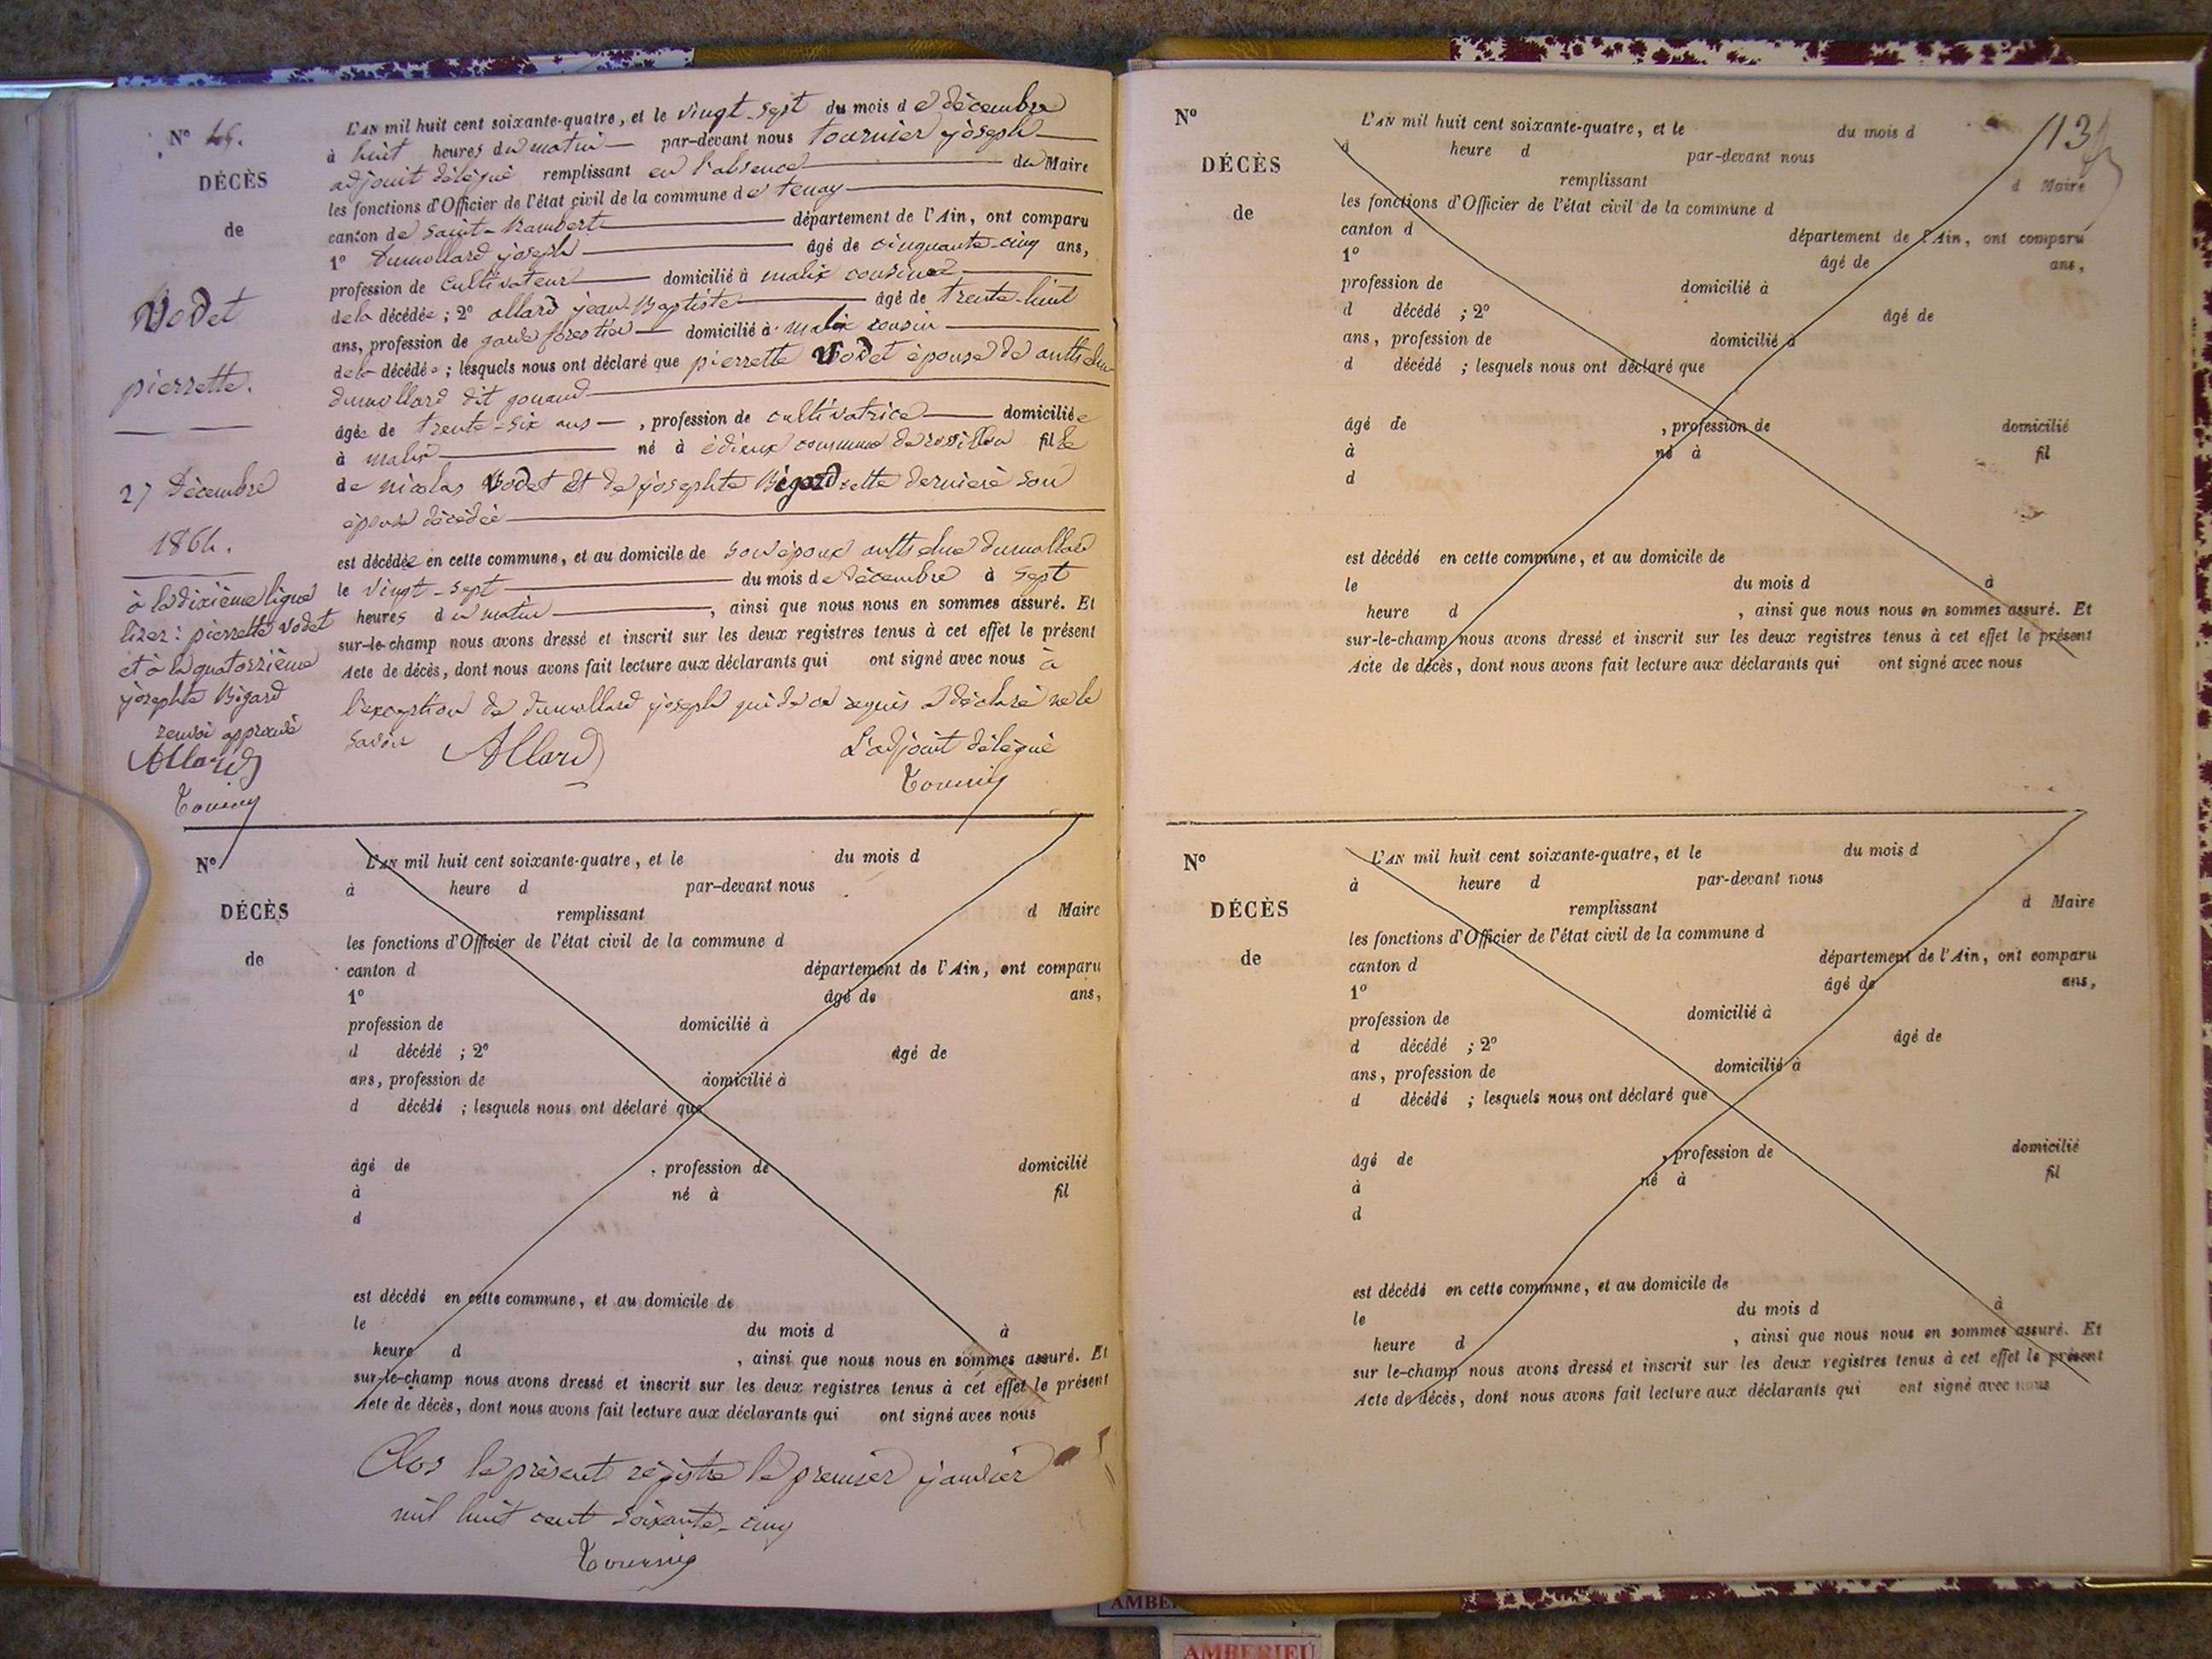 N° 46.
DÉCÈS
de
Vodet
pierrette.
27 Décembre
1864.
à la dixième ligne
lirez : pierrette vodet
et à la quatorzième
josephte Bigard
renvoi approuvé
Allard
L'AN mil huit cent soixante-quatre, et le vingt-sept du mois de décembre
à huit heures du matin par-devant nous tournier joseph
adjoint délégué remplissant en l'absence du Maire
les fonctions d'Officier de l'état civil de la commune de tenay
canton de Saint-Rambert département de l'Ain, ont comparu
1° Dumollard joseph âgé de cinquante-cinq ans,
profession de cultivateur domicilié à malix cousin
de la décédée ; 2° allard jean-Baptiste âgé de trente-huit
ans, profession de garde forestier domicilié à malix cousin
de la décédée ; lesquels nous ont déclaré que pierrette Vodet épouse de anthelme
dumollard dit
âgée de trente-six ans , profession de cultivatrice domiciliée
à malix né à édieux commune de rossillon fille
de nicolas Vodet et de josephte Bigard cette dernière son
épouse décédée
est décédée en cette commune, et au domicile de son époux anthelme dumollard
le vingt-sept du mois de décembre à sept
heures du matin , ainsi que nous nous en sommes assuré. Et
sur-le-champ nous avons dressé et inscrit sur les deux registres tenus à cet effet le présent
Acte de décès, dont nous avons fait lecture aux déclarants qui ont signé avec nous à
l'exception de dumollard joseph qui de ce requis a déclaré ne le
savoir Allard L'adjoint délégué
N°
DÉCÈS
de
L'AN mil huit cent soixante-quatre, et le du mois d
à heure d par-devant nous
remplissant d Maire
les fonctions d'Officier de l'état civil de la commune d
canton d département de l'Ain, ont comparu
1° âgé de ans,
profession de domicilié à
d décédé ; 2° âgé de
ans, profession de domicilié à
d décédé ; lesquels nous ont déclaré que
âgé de , profession de domicilié
à né à fil
d
est décédé en cette commune, et au domicile de
le du mois d à
heure d , ainsi que nous nous en sommes assuré. Et
sur-le-champ nous avons dressé et inscrit sur les deux registres tenus à cet effet le présent
Acte de décès, dont nous avons fait lecture aux déclarants qui ont signé avec nous
Clos le présent régistre le premier janvier
mil huit cent soixante-cinq
N°
DÉCÈS
de
L'AN mil huit cent soixante-quatre, et le du mois d
à heure d par-devant nous
remplissant d Maire
les fonctions d'Officier de l'état civil de la commune d
canton d département de l'Ain, ont comparu
1° âgé de ans,
profession de domicilié à
d décédé ; 2° âgé de
ans, profession de domicilié à
d décédé ; lesquels nous ont déclaré que
âgé de , profession de domicilié
à né à fil
d
est décédé en cette commune, et au domicile de
le du mois d à
heure d , ainsi que nous nous en sommes assuré. Et
sur-le-champ nous avons dressé et inscrit sur les deux registres tenus à cet effet le présent
Acte de décès, dont nous avons fait lecture aux déclarants qui ont signé avec nous
N°
DÉCÈS
de
L'AN mil huit cent soixante-quatre, et le du mois d
à heure d par-devant nous
remplissant d Maire
les fonctions d'Officier de l'état civil de la commune d
canton d département de l'Ain, ont comparu
1° âgé de ans,
profession de domicilié à
d décédé ; 2° âgé de
ans, profession de domicilié à
d décédé ; lesquels nous ont déclaré que
âgé de , profession de domicilié
à né à fil
d
est décédé en cette commune, et au domicile de
le du mois d à
heure d , ainsi que nous nous en sommes assuré. Et
sur le-champ nous avons dressé et inscrit sur les deux registres tenus à cet effet le présent
Acte de décès, dont nous avons fait lecture aux déclarants qui ont signé avec nous
AMBE
AMBERIEU